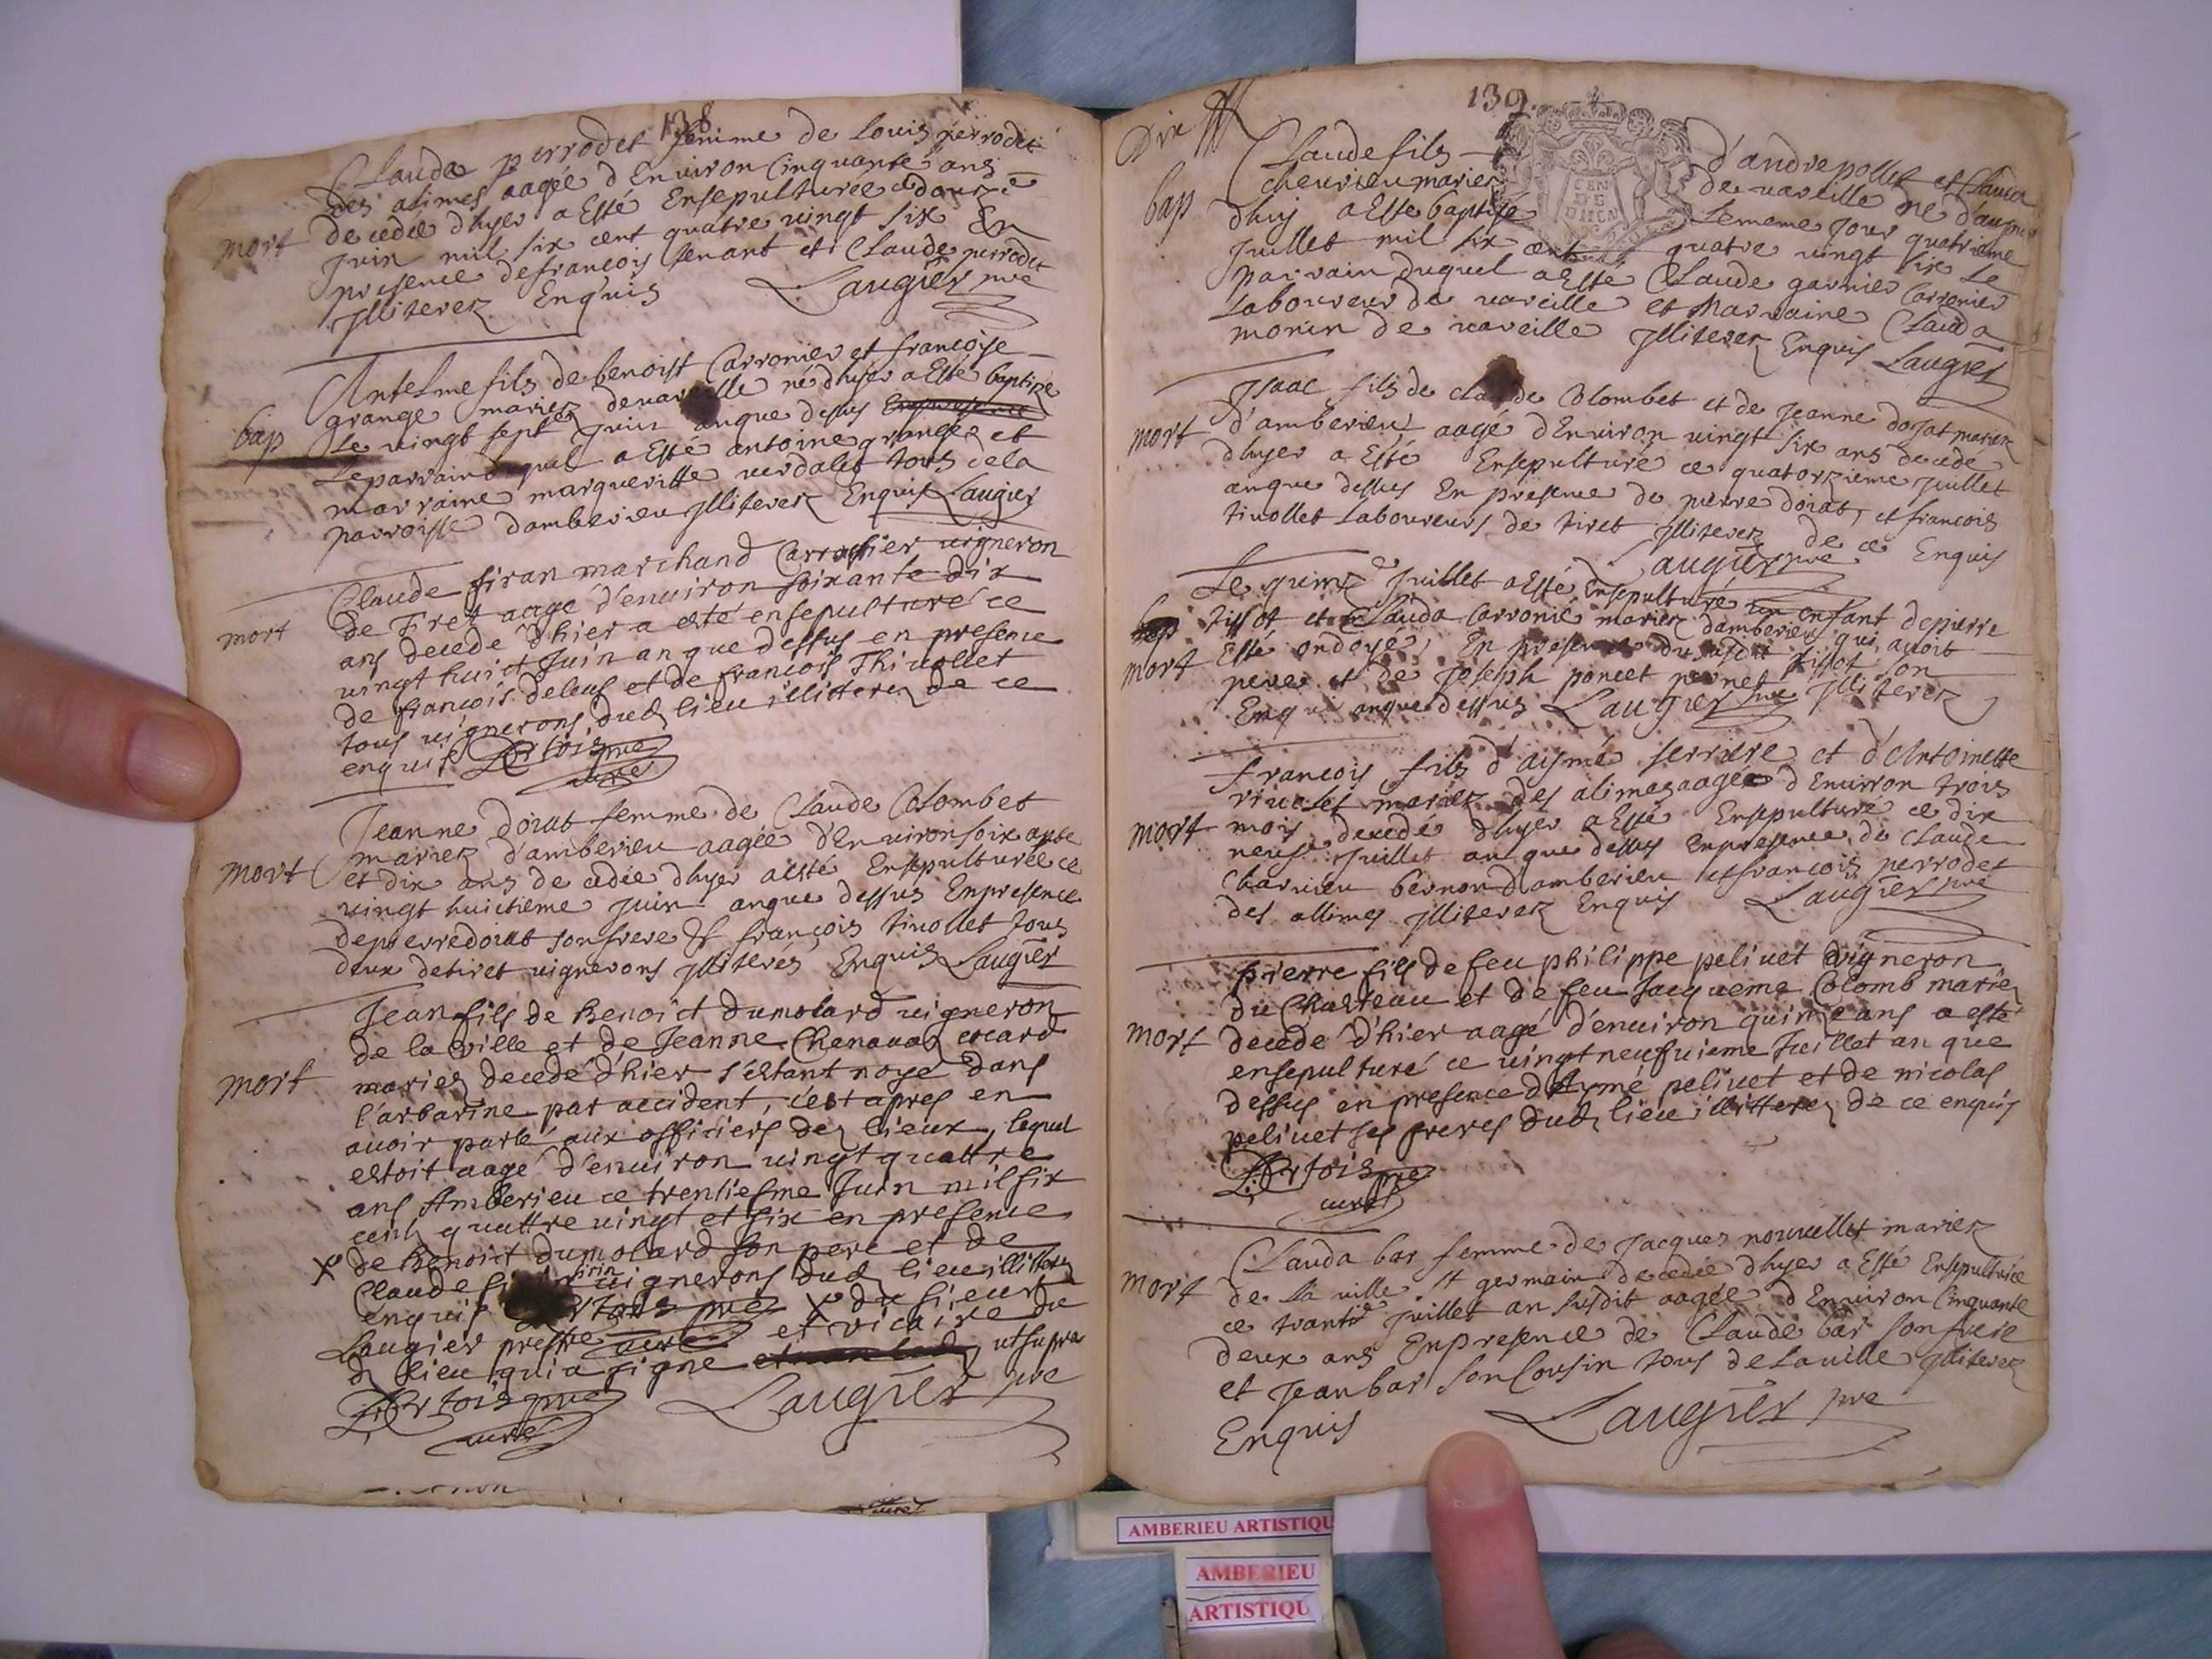 138
Clauda perrodet femme de Louis perrodet
des alimes aagée d'Environ Cinquante ans
mort
decedée d'hyer a Esté Ensepulturée ce douze
Juin mil six cent quatre vingt six En
presence de francois tenant et Claude perrodet
jlliterez Enquis Laugier pre
Antelme fils de benoist Carronier et francoise
grange mariez de vareille né d'hyer a Esté baptise
bap
Le vingt sept Juin anque dessus
Le parrain duquel a Esté antoine grange et
marraine margueritte verdalet tous de la
parroisse damberieu jlliterez Enquis Laugier
Claude firan marchand Carrostier vigneron
de Tiret aagé d'environ soixante dix
mort
ans decedé d'hier a esté ensepulturé ce
vingt huict Juin an que dessus en presence
de francois deleus et de francois Thivollet
tous vignerons dud lieu illitterez de ce
enquis Dertois pre
curé
Jeanne dorat femme de Claude Colombet
mariez d'amberieu aagée d'Environ soix ante
mort
et dix ans de cedée d'hyer a esté Ensepulturée ce
vingt huictieme juin anque dessus En presence
de pierre dorat son frere & françois tivollet tous
deux de tiret vignerons jlliterés Enquis Laugier
Jean fils de Benoict dumolard vigneron
de la ville et de Jeanne Chenavaz cocard
mort
mariez decedé d'hier s'estant noyé dans
l'arbarine par accident, c'est apres en
avoir parlé aux officiers des lieux, lequel
estoit aagé d'environ vingt quattre
ans Amberieu ce trentiesme Juin mil six
cent quattre vingt et six en presence
X de Benoict dumolard son pere et de
Claude vignerons dud lieu illitterez
enquis X du sieur
Laugier prestre et vicaire du
d lieu qui a signe ut supra
Dertois pre Laugier pre
curé
curé
139.
Dix
Claude fils d'andre pollet et Clauda
chevrieu mariez de vareille né d'aujour
bap
d'huy a Esté baptisé Le meme Jour quatrieme
Juillet mil six cent quatre vingt six Le
parrain duquel a Esté Claude garnier Carronier
Laboureur de vareille et Marraine Clauda
morin de vareille jlliterez Enquis Laugier
Jsaac fils de claude Colombet et de Jeanne dorat mariez
mort
d'amberieu aagé d'Environ vingt six ans decedé
d'hyer a Esté Ensepulturé ce quatorzieme juillet
anque dessus En presence de pierre dorat, et francois
tivollet Laboureurs de tiret jlliterez de ce Enquis
Laugier pre
Le quinze Juillet a Esté Ensepulturé un enfant de pierre
tissot et Clauda Carronié mariez d'amberieu qui avoit
mort
Esté ondoyé, En presence du susdit tissot son
pere et de Joseph poncet jlliterez
Enquis anque dessus Laugier pre
francois fils d'aismé serriere et d'Antoinette
rivolet mariez des alimes aagée d'Environ trois
mort
mois decedé d'hyer a Esté Ensepulturé ce dix
neuf juillet an que dessus En presence de Claude
Charvieu bernon d'amberieu et francois perrodet
des allimes jlliterez Enquis Laugier pre
pierre fils de feu philippe pelivet vigneron
du Chasteau et de feu Jacqueme Colomb mariez
mort
decedé d'hier aagé d'environ quinze ans a esté
ensepulturé ce vingt neufvieme Juillet an que
dessus en presence d'Aymé pelivet et de nicolas
pelivet ses freres dud lieu illitterez de ce enquis
Dertois pre
curé
Clauda bar femme de Jacques nouvellet mariez
mort
de la ville st germain decedée d'hyer a Esté Ensepulturée
ce trante juillet an susdit aagée d'Environ Cinquante
deux ans En presence de Claude bar son frere
et Jean bar son Cousin tous de la ville jlliterez
Enquis Laugier pre
AMBERIEU ARTISTIQU
AMBERIEU
ARTISTIQU